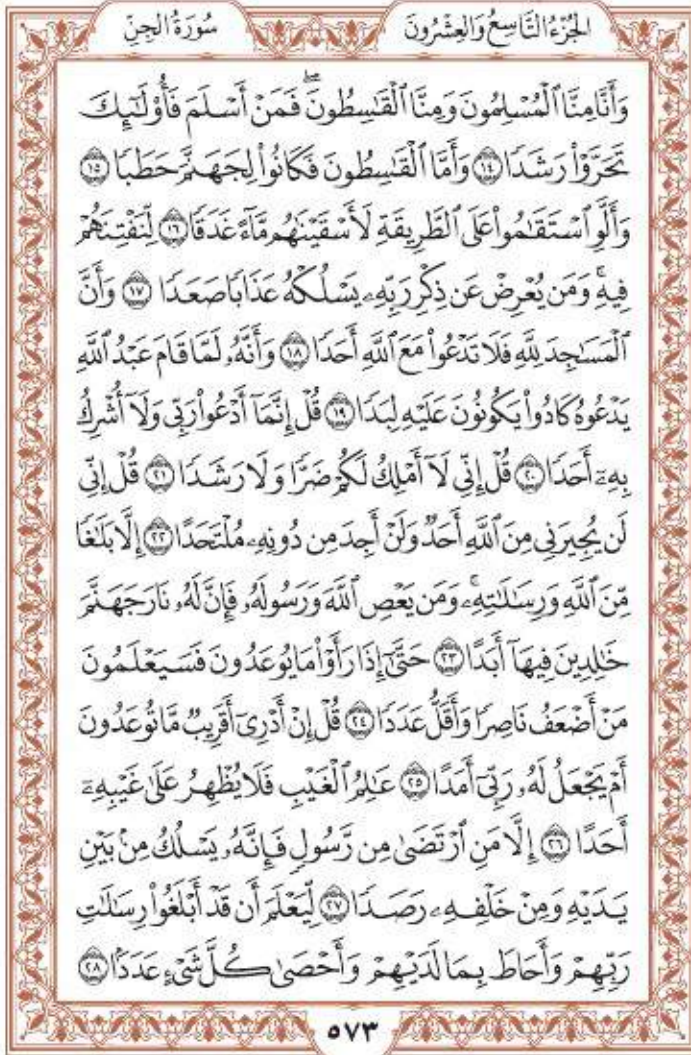 الجُزْءُ التَّاسِعُ وَالعِشْرُونَ
سُورَةُ الجِنِّ
وَأَنَّا مِنَّا ٱلْمُسْلِمُونَ وَمِنَّا ٱلْقَٰسِطُونَۖ فَمَنْ أَسْلَمَ فَأُوْلَٰٓئِكَ
تَحَرَّوْاْ رَشَدٗا ١٤ وَأَمَّا ٱلْقَٰسِطُونَ فَكَانُواْ لِجَهَنَّمَ حَطَبٗا ١٥
وَأَلَّوِ ٱسْتَقَٰمُواْ عَلَى ٱلطَّرِيقَةِ لَأَسْقَيْنَٰهُم مَّآءً غَدَقٗا ١٦ لِّنَفْتِنَهُمْ
فِيهِۚ وَمَن يُعْرِضْ عَن ذِكْرِ رَبِّهِۦ يَسْلُكْهُ عَذَابٗا صَعَدٗا ١٧ وَأَنَّ
ٱلْمَسَٰجِدَ لِلَّهِ فَلَا تَدْعُواْ مَعَ ٱللَّهِ أَحَدٗا ١٨ وَأَنَّهُۥ لَمَّا قَامَ عَبْدُ ٱللَّهِ
يَدْعُوهُ كَادُواْ يَكُونُونَ عَلَيْهِ لِبَدٗا ١٩ قُلْ إِنَّمَآ أَدْعُواْ رَبِّي وَلَآ أُشْرِكُ
بِهِۦٓ أَحَدٗا ٢٠ قُلْ إِنِّي لَآ أَمْلِكُ لَكُمْ ضَرّٗا وَلَا رَشَدٗا ٢١ قُلْ إِنِّي
لَن يُجِيرَنِي مِنَ ٱللَّهِ أَحَدٞ وَلَنْ أَجِدَ مِن دُونِهِۦ مُلْتَحَدًا ٢٢ إِلَّا بَلَٰغٗا
مِّنَ ٱللَّهِ وَرِسَٰلَٰتِهِۦۚ وَمَن يَعْصِ ٱللَّهَ وَرَسُولَهُۥ فَإِنَّ لَهُۥ نَارَ جَهَنَّمَ
خَٰلِدِينَ فِيهَآ أَبَدًا ٢٣ حَتَّىٰٓ إِذَا رَأَوْاْ مَا يُوعَدُونَ فَسَيَعْلَمُونَ
مَنْ أَضْعَفُ نَاصِرٗا وَأَقَلُّ عَدَدٗا ٢٤ قُلْ إِنْ أَدْرِيٓ أَقَرِيبٞ مَّا تُوعَدُونَ
أَمْ يَجْعَلُ لَهُۥ رَبِّيٓ أَمَدًا ٢٥ عَٰلِمُ ٱلْغَيْبِ فَلَا يُظْهِرُ عَلَىٰ غَيْبِهِۦٓ
أَحَدًا ٢٦ إِلَّا مَنِ ٱرْتَضَىٰ مِن رَّسُولٖ فَإِنَّهُۥ يَسْلُكُ مِنۢ بَيْنِ
يَدَيْهِ وَمِنْ خَلْفِهِۦ رَصَدٗا ٢٧ لِّيَعْلَمَ أَن قَدْ أَبْلَغُواْ رِسَٰلَٰتِ
رَبِّهِمْ وَأَحَاطَ بِمَا لَدَيْهِمْ وَأَحْصَىٰ كُلَّ شَيْءٍ عَدَدَۢا ٢٨
٥٧٣